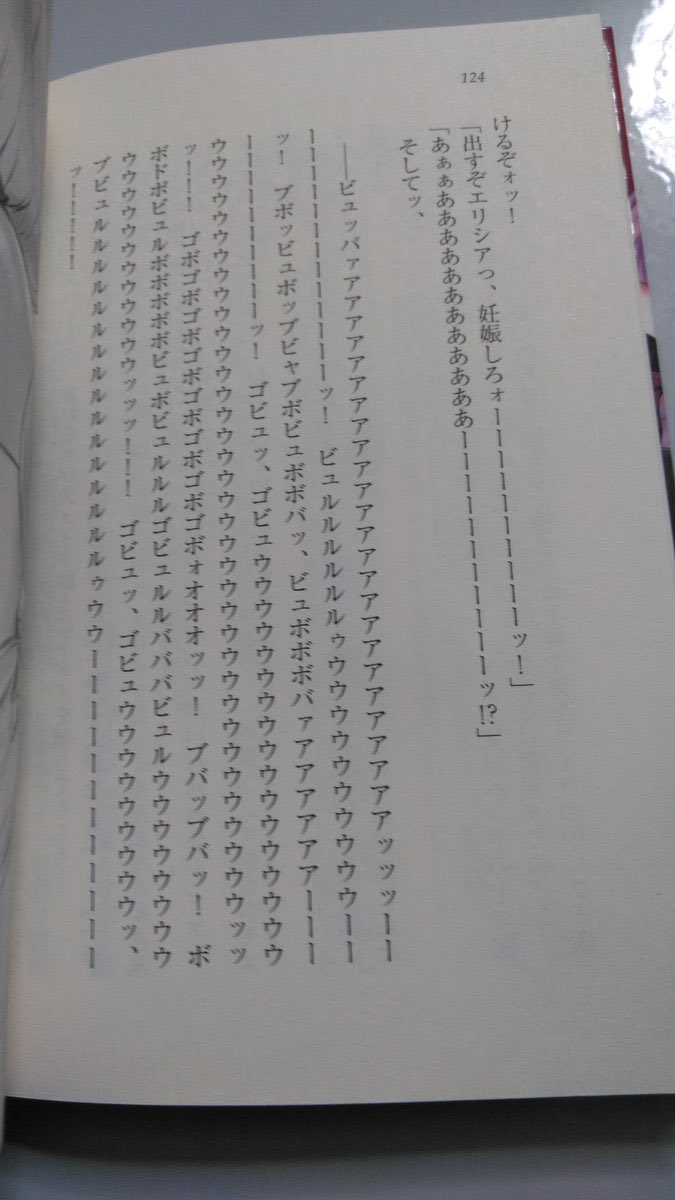 124
けるぞォッ！
「出すぞエリシアっ、妊娠しろォーーーーーーーーーーッ！」
「あぁぁああああああああああーーーーーーーーーーッ!?」
そしてッ、
――ビュッバァアアアアアアアアアアアアアアアアアアアアアアッッッーー
ーーーーーーーーーーーーッ！　ビュルルルルルルゥウウウウウウウウウウーー
ッ！　ブボッビュボップビャブボビュボボバッ、ビュボボボバァアアアアアアーーー
ーーーーーーーーーーッ！　ゴビュッ、ゴビュウウウウウウウウウウウウウウウウ
ウウウウウウウウウウウウウウウウウウウウウウウウウウウウウウウウウウウウッッ
ッ！！！　ゴボゴボゴボゴボゴボゴボゴボォオオオッッ！　ブバッブバッ！　ボ
ボドボビュルボボボボビュボビュルルルゴビュルルバババビュルウウウウウウウウ
ウウウウウウウウウウウッッッ！！！　ゴビュッ、ゴビュウウウウウウウウウウッ、
ブビュルルルルルルルルルルルルルルルルゥウウーーーーーーーーーーーーー
ッ！！！！！